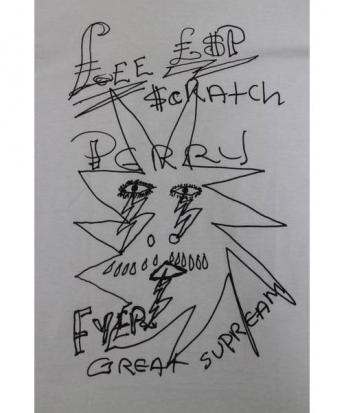 £EE £$P
$cRAtcH
PERRY
FYER
GREAT SUPREAM